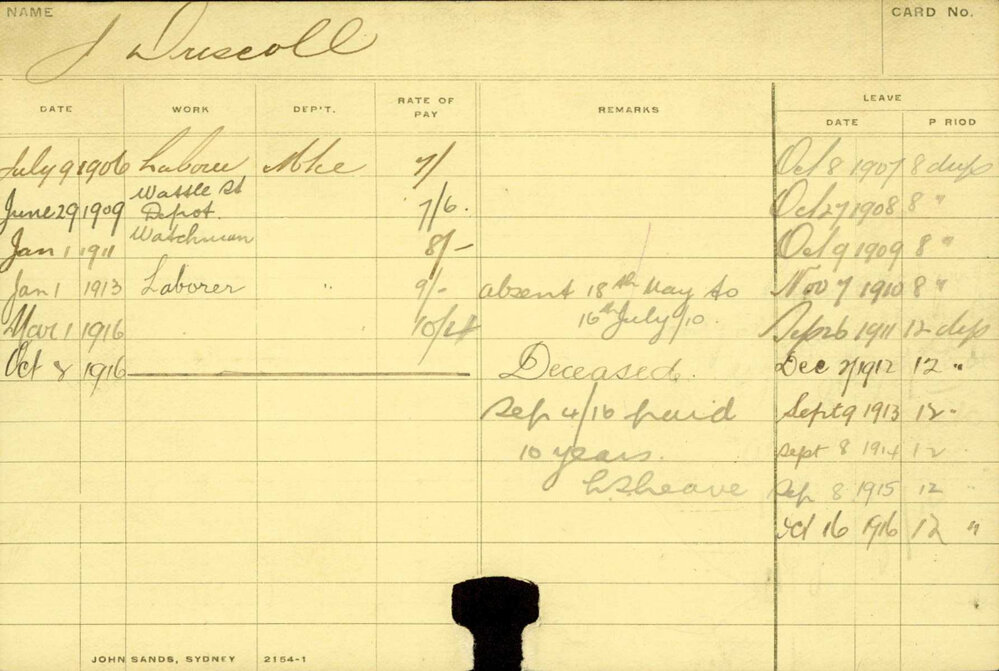 NAME
CARD No.
J Driscoll
DATE WORK DEP'T. RATE OF PAY REMARKS LEAVE
DATE P RIOD
July 9 1906 Laborer 7/ Oct 8 1907 8 days
Wattle St
June 29 1909 Depot. 7/6. Oct 27 1908 8 "
Jan 1 1911 Watchman 8/- Oct 9 1909 8 "
Jan 1 1913 Laborer " 9/- absent 18th May to Nov 7 1910 8 "
Mar 1 1916 16th July/10. Sep 26 1911 12 days
Oct 8 1916 Deceased. Dec 2/1912 12 "
Sep 4/16 paid Sept 9 1913 12 "
10 years. Sept 8 1914 12
L.S. Leave Sep 8 1915 12 "
Oct 16 1916 12 "
JOHN SANDS, SYDNEY 2154-1